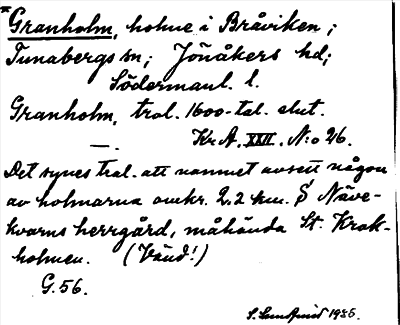 *Granholm, holme i Bråviken;
Tunabergs sn; Jönåkers hd;
Södermanl. l.
Granholm, trol. 1600-tal. slut.
—. Kr A. XXII. N:o 26.
Det synes trol. att namnet avsett någon
av holmarna omkr. 2,2 km. S Näve-
kvarns herrgård, måhända St. Krok-
holmen. (Vänd!)
G. 56.
S. Lundquist 1935.